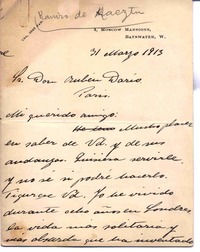 Ramiro de Maeztu
8, MOSCOW MANSIONS,
BAYSWATER, W.
31 Marzo 1913
Sr. Don Rubén Darío
Paris.
Mi querido amigo:
Mucho placer
en saber de Vd. y de sus
andanzas. Quisiera servirle
y no sé si podré hacerlo.
Figúrese Vd. Yo he vivido
durante ocho años en Londres
la vida más solitaria y
más absurda que ha inventado